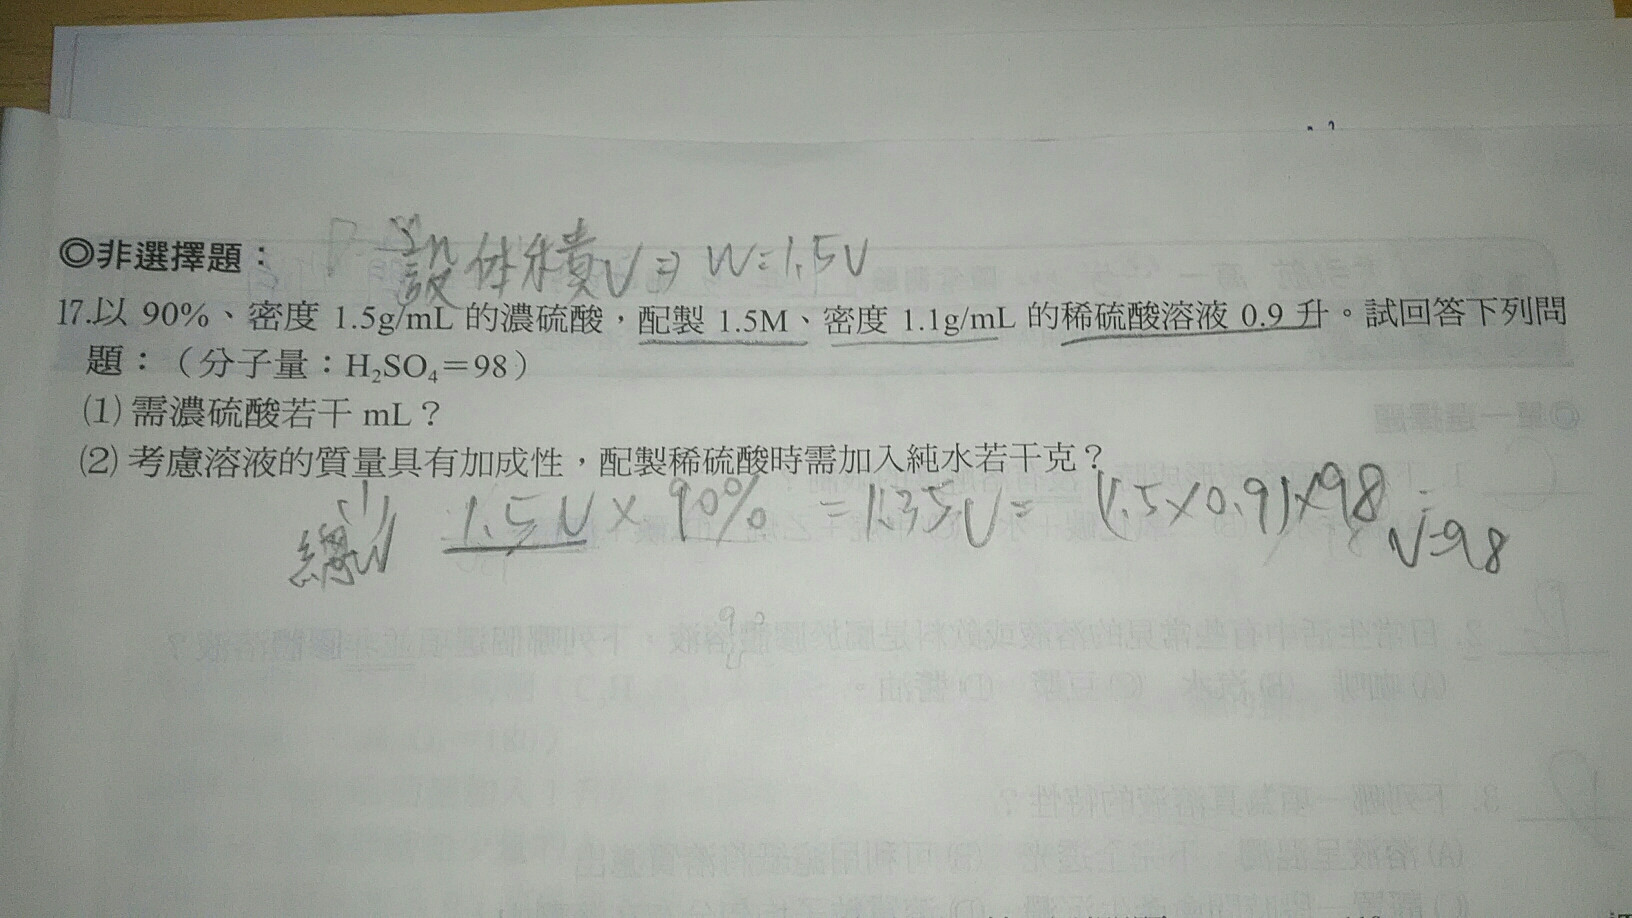 設体積V⇒ W=1.5V
◎非選擇題：
17.以 90%、密度 1.5g/mL 的濃硫酸，配製 1.5M、密度 1.1g/mL 的稀硫酸溶液 0.9 升。試回答下列問
題：（分子量：H₂SO₄＝98）
(1) 需濃硫酸若干 mL？
(2) 考慮溶液的質量具有加成性，配製稀硫酸時需加入純水若干克？
(1) 1.5V×90% =1.35V= (1.5×0.9)×98
總W V=98